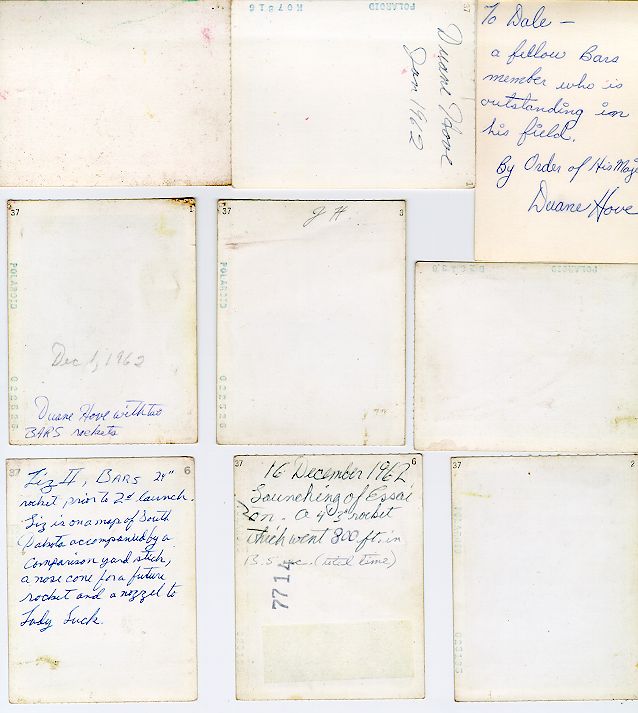 K07516 POLAROID 37
Duane Hove
Jan 1962
1
To Dale —
a fellow Bars
member who is
outstanding in
his field.
By Order of His Maje
Duane Hove
37 1
POLAROID
Dec 1, 1962
Duane Hove with two
BARS rockets
37 3
POLAROID
J H.
POLAROID
37 6
Liz II, BARS 24"
rocket prior to 2nd launch.
Liz is on a map of South
Dakota accompanied by a
comparison yard stick,
a nose cone for a future
rocket and a nozzel to
Lady Luck.
37 6
16 December 1962
Launching of Essai
on. A 4'3" rocket
which went 800 ft. in
(total time)
7714
37 2
POLAROID